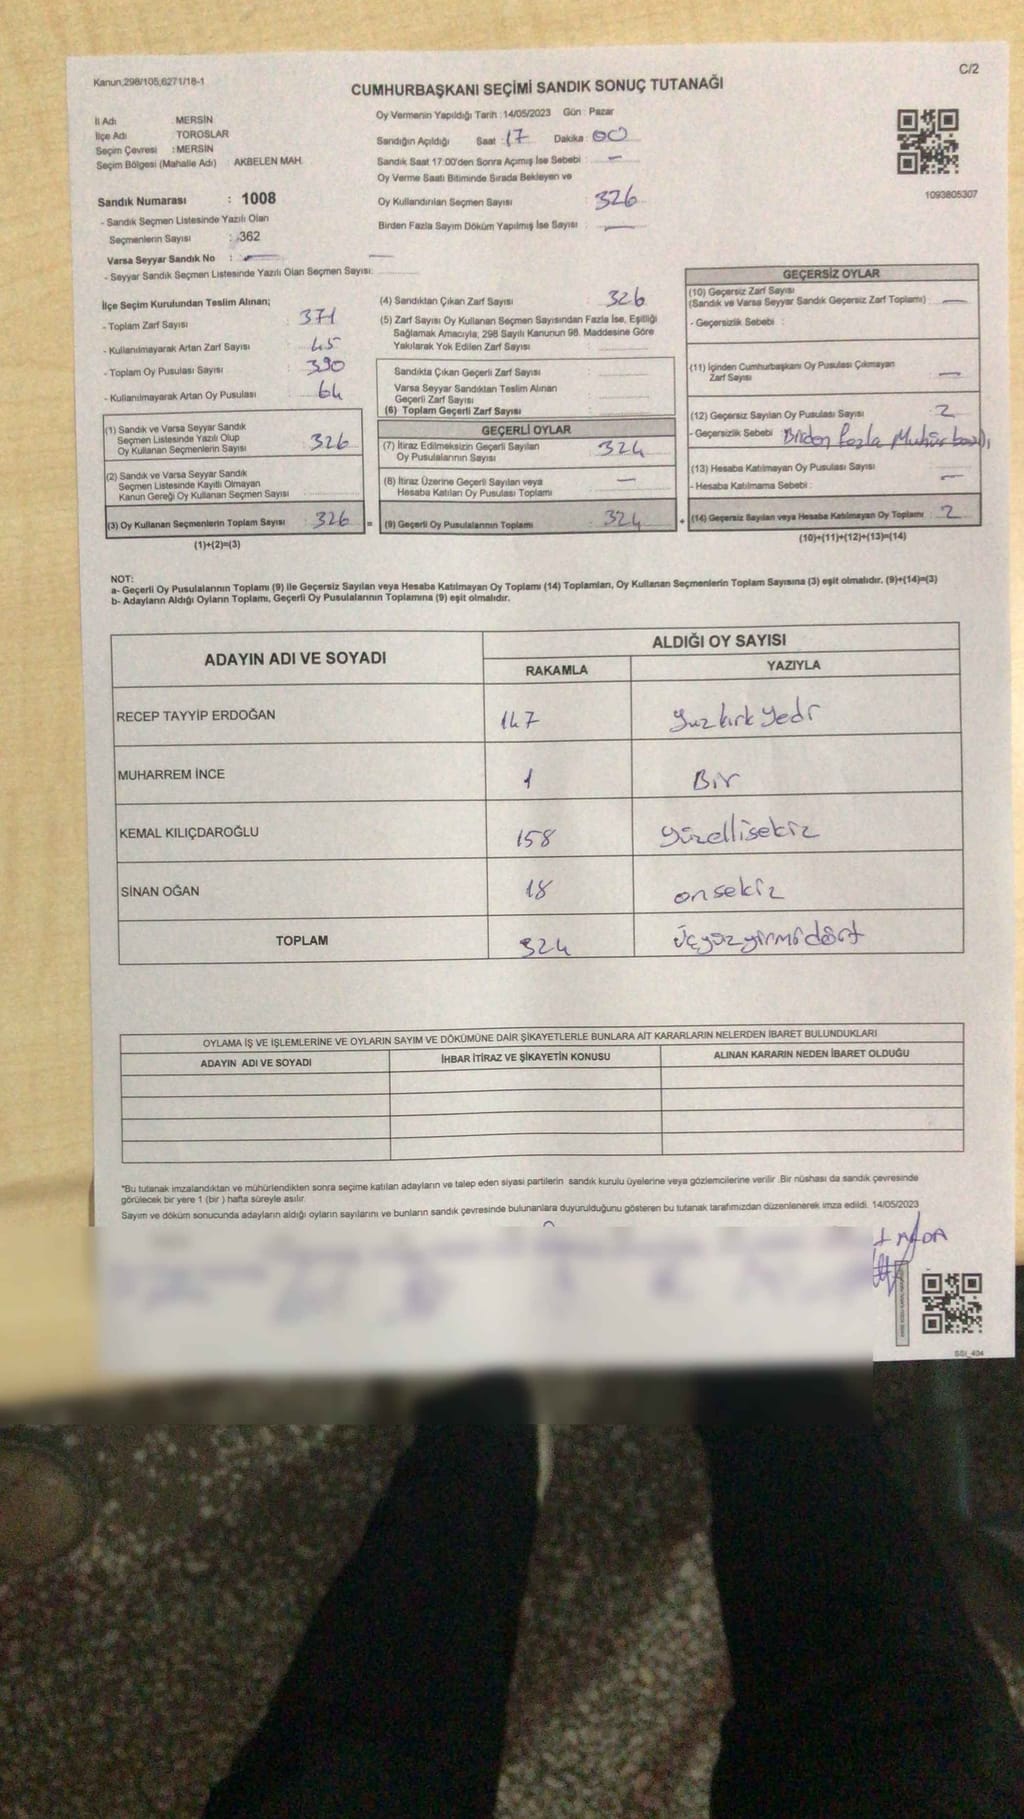 Kanun:298/105;6271/18-1
C/2
CUMHURBAŞKANI SEÇİMİ SANDIK SONUÇ TUTANAĞI
İl Adı MERSİN
İlçe Adı TOROSLAR
Seçim Çevresi : MERSİN
Seçim Bölgesi (Mahalle Adı) : AKBELEN MAH.
Sandık Numarası : 1008
- Sandık Seçmen Listesinde Yazılı Olan
Seçmenlerin Sayısı : 362
Varsa Seyyar Sandık No : —
- Seyyar Sandık Seçmen Listesinde Yazılı Olan Seçmen Sayısı:
Oy Vermenin Yapıldığı Tarih : 14/05/2023 Gün : Pazar
Sandığın Açıldığı Saat : 17 Dakika : 00
Sandık Saat 17:00'den Sonra Açılmış İse Sebebi : —
Oy Verme Saati Bitiminde Sırada Bekleyen ve
Oy Kullandırılan Seçmen Sayısı 326
Birden Fazla Sayım Döküm Yapılmış İse Sayısı : —
1093805307
İlçe Seçim Kurulundan Teslim Alınan;
- Toplam Zarf Sayısı 371
- Kullanılmayarak Artan Zarf Sayısı 45
- Toplam Oy Pusulası Sayısı 390
- Kullanılmayarak Artan Oy Pusulası 64
(1) Sandık ve Varsa Seyyar Sandık
Seçmen Listesinde Yazılı Olup
Oy Kullanan Seçmenlerin Sayısı 326
(2) Sandık ve Varsa Seyyar Sandık
Seçmen Listesinde Kayıtlı Olmayan
Kanun Gereği Oy Kullanan Seçmen Sayısı
(3) Oy Kullanan Seçmenlerin Toplam Sayısı 326 =
(1)+(2)=(3)
(4) Sandıktan Çıkan Zarf Sayısı 326
(5) Zarf Sayısı Oy Kullanan Seçmen Sayısından Fazla İse, Eşitliği
Sağlamak Amacıyla, 298 Sayılı Kanunun 98. Maddesine Göre
Yakılarak Yok Edilen Zarf Sayısı
Sandıkta Çıkan Geçerli Zarf Sayısı
Varsa Seyyar Sandıktan Teslim Alınan
Geçerli Zarf Sayısı
(6) Toplam Geçerli Zarf Sayısı
GEÇERLİ OYLAR
(7) İtiraz Edilmeksizin Geçerli Sayılan
Oy Pusulalarının Sayısı 324
(8) İtiraz Üzerine Geçerli Sayılan veya
Hesaba Katılan Oy Pusulası Toplamı —
(9) Geçerli Oy Pusulalarının Toplamı 324 +
GEÇERSİZ OYLAR
(10) Geçersiz Zarf Sayısı
(Sandık ve Varsa Seyyar Sandık Geçersiz Zarf Toplamı) —
- Geçersizlik Sebebi :
(11) İçinden Cumhurbaşkanı Oy Pusulası Çıkmayan
Zarf Sayısı —
(12) Geçersiz Sayılan Oy Pusulası Sayısı 2
- Geçersizlik Sebebi Birden fazla Mühür
(13) Hesaba Katılmayan Oy Pusulası Sayısı —
- Hesaba Katılmama Sebebi :
(14) Geçersiz Sayılan veya Hesaba Katılmayan Oy Toplamı : 2
(10)+(11)+(12)+(13)=(14)
NOT:
a- Geçerli Oy Pusulalarının Toplamı (9) ile Geçersiz Sayılan veya Hesaba Katılmayan Oy Toplamı (14) Toplamları, Oy Kullanan Seçmenlerin Toplam Sayısına (3) eşit olmalıdır. (9)+(14)=(3)
b- Adayların Aldığı Oyların Toplamı, Geçerli Oy Pusulalarının Toplamına (9) eşit olmalıdır.
ADAYIN ADI VE SOYADI ALDIĞI OY SAYISI
RAKAMLA YAZIYLA
RECEP TAYYİP ERDOĞAN 147 Yüzkırkyedi
MUHARREM İNCE 1 Bir
KEMAL KILIÇDAROĞLU 158 yüzellisekiz
SİNAN OĞAN 18 onsekiz
TOPLAM 324 üçyüzyirmidört
OYLAMA İŞ VE İŞLEMLERİNE VE OYLARIN SAYIM VE DÖKÜMÜNE DAİR ŞİKAYETLERLE BUNLARA AİT KARARLARIN NELERDEN İBARET BULUNDUKLARI
ADAYIN ADI VE SOYADI İHBAR İTİRAZ VE ŞİKAYETİN KONUSU ALINAN KARARIN NEDEN İBARET OLDUĞU
"Bu tutanak imzalandıktan ve mühürlendikten sonra seçime katılan adayların ve talep eden siyasi partilerin sandık kurulu üyelerine veya gözlemcilerine verilir .Bir nüshası da sandık çevresinde
görülecek bir yere 1 (bir ) hafta süreyle asılır.
Sayım ve döküm sonucunda adayların aldığı oyların sayılarını ve bunların sandık çevresinde bulunanlara duyurulduğunu gösteren bu tutanak tarafımızdan düzenlenerek imza edildi. 14/05/2023
SSI_404